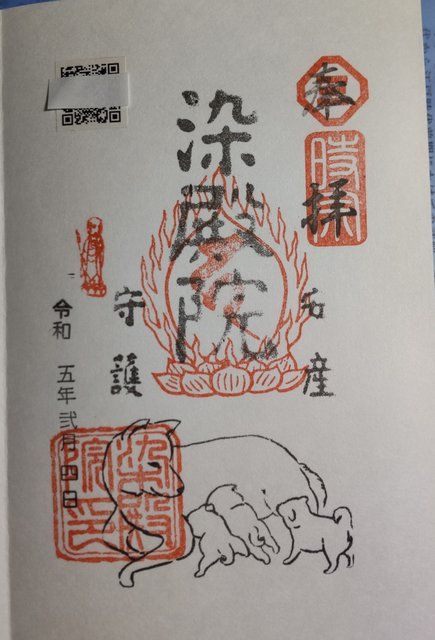 奉拝
時宗
安産
染殿院
守護
令和 五年 弐月 四日
染殿
院印